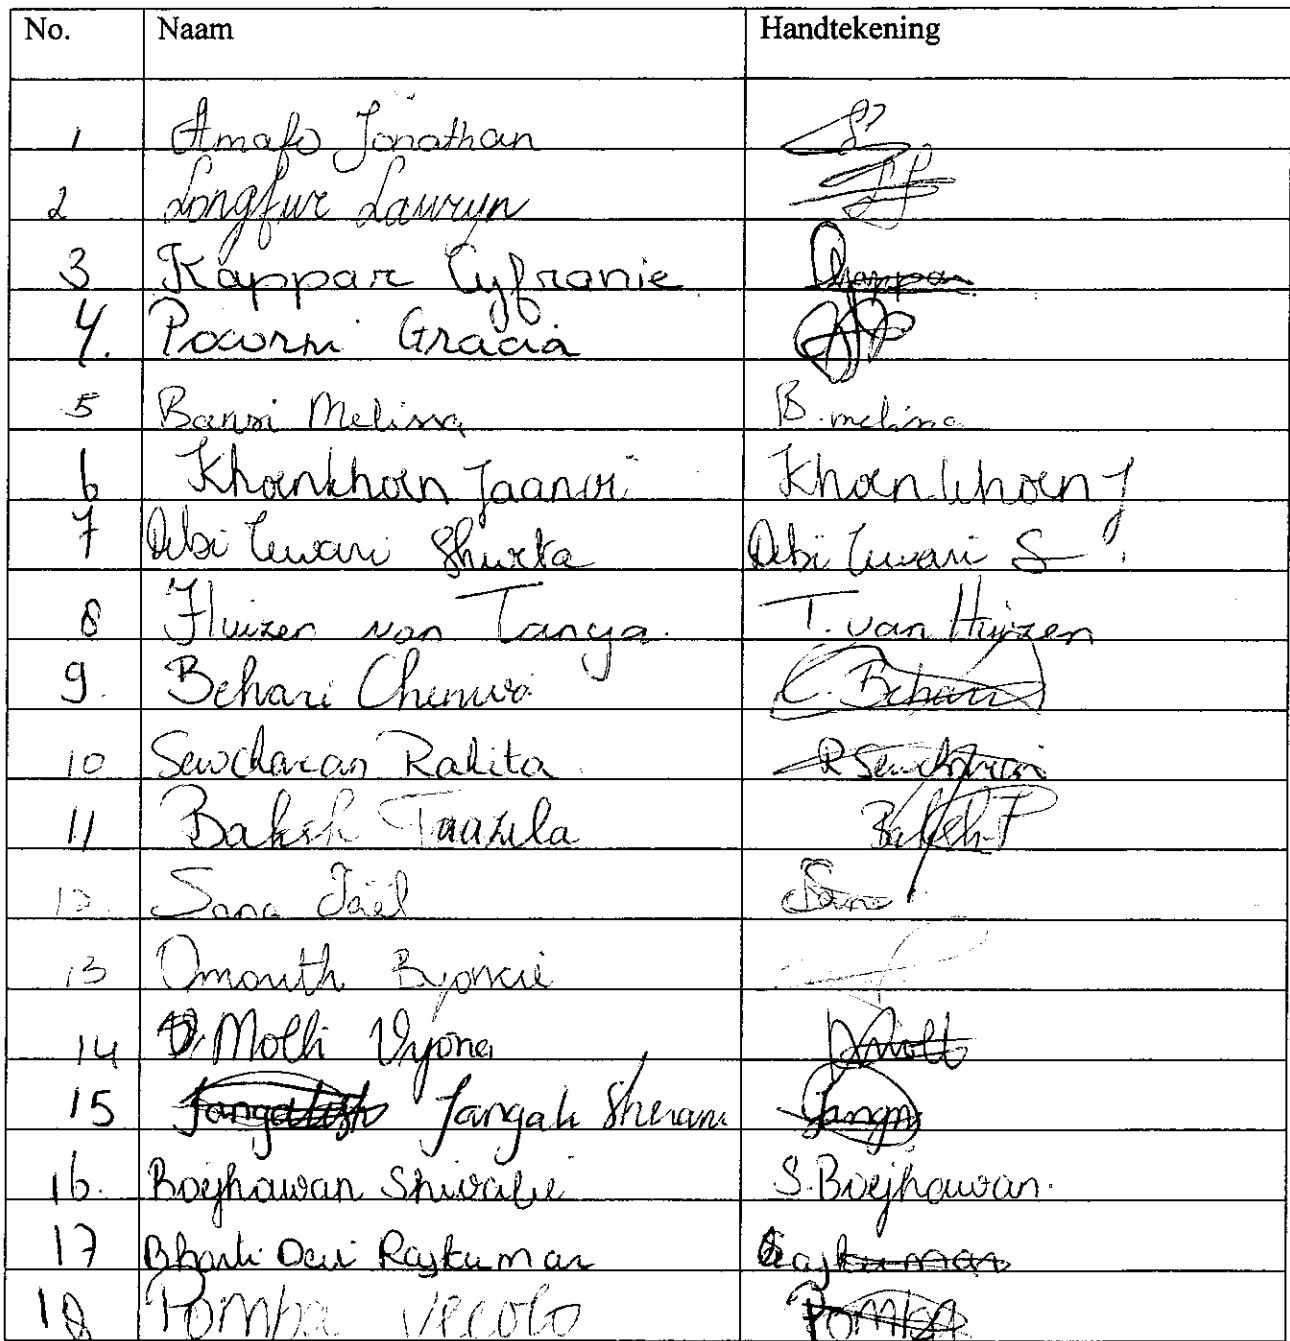 No. Naam Handtekening
1 Amafo Jonathan
2 Longfur Lauryn
3 Kappar Cyfranie
4. Pocorni Gracia
5 Bansi Melissa B. melissa
6 Khoenkhoen Jaanvi Khoenkhoen J
7 Debi Tewari Shurta Debi Tewari S
8 Huizen van Tanya. T. van Huizen
9. Behari C. Behari
10 Sewcharan Rakita R Sewcharan
11 Baksh Taazila Baksh T
12. Sana Jaël Sana
13 Omouth
14 Molli Vyona
15 Jangali
16. Boejhawan S. Boejhawan.
17 Bharti Devi Rajkumar Rajkumar
18 Pomba Pomba